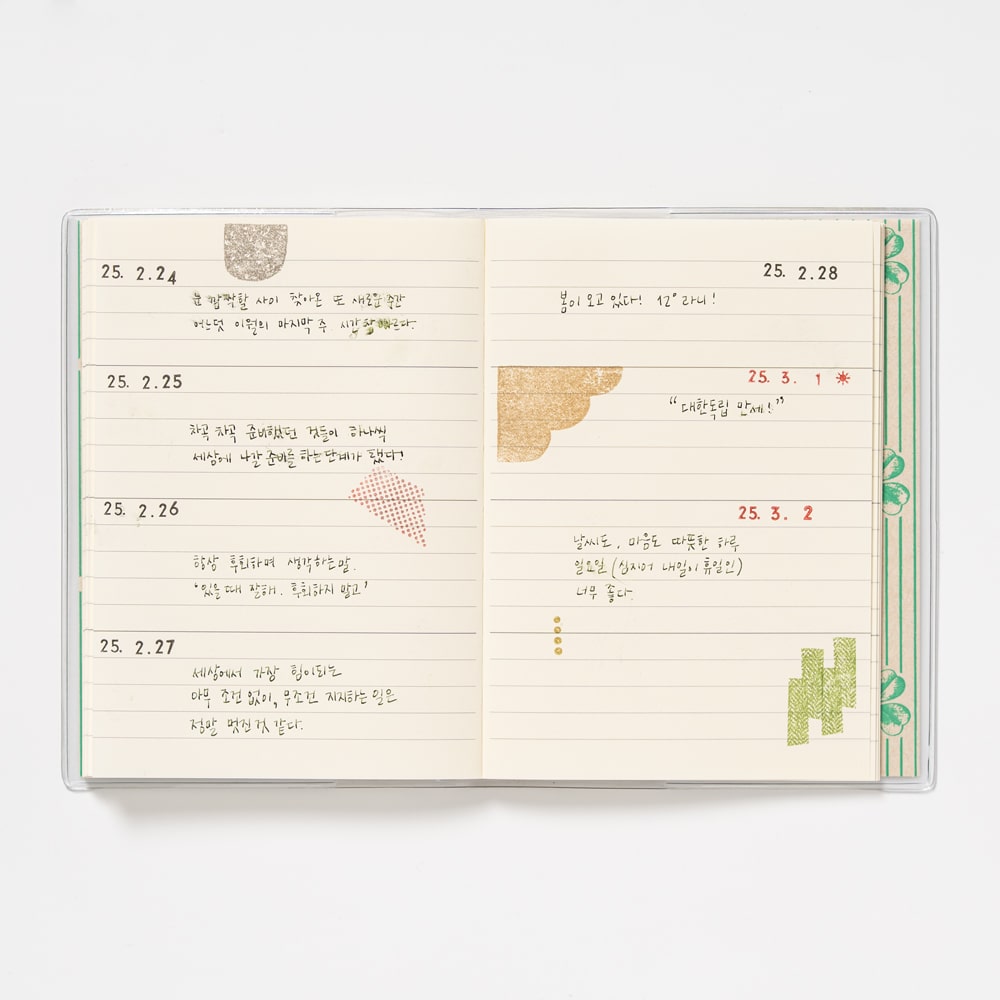 25. 2.24
눈 깜짝할 사이 찾아온 또 새로운 주간
어느덧 이월의 마지막 주. 시간 참 빠르다.
25. 2.25
차곡 차곡 준비했던 것들이 하나씩
세상에 나갈 준비를 하는 단계가 됐다!
25. 2.26
항상 후회하며 생각하는 말.
"있을 때 잘해. 후회하지 말고"
25. 2.27
세상에서 가장 힘이되는
아무 조건 없이, 무조건 지지하는 일은
정말 멋진 것 같다.
25. 2.28
봄이 오고 있다! 12° 라니!
25. 3. 1
"대한독립 만세!"
25. 3. 2
날씨도, 마음도 따뜻한 하루
일요일 (심지어 내일이 휴일인)
너무 좋다.